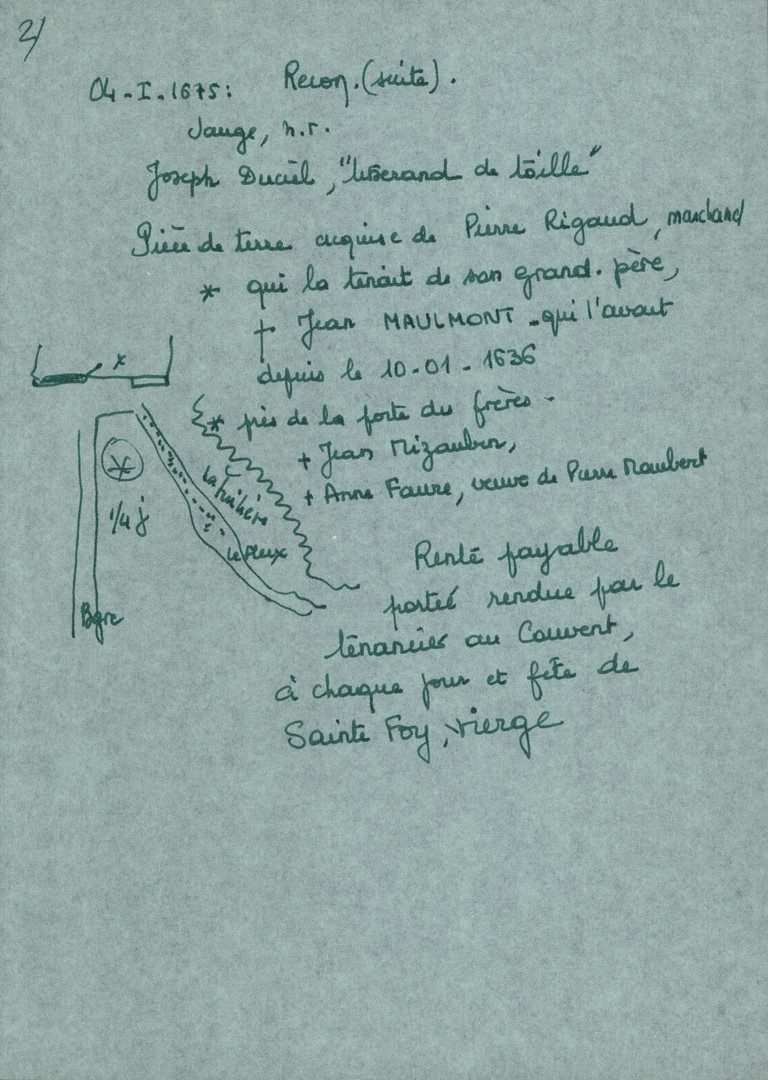 2/
04-I.1675: Recon. (suite).
Jauge, n.r.
Joseph Duciel, "tisserand de toille"
Pièce de terre acquise de Pierre Rigaud, marchand
* qui la tenait de son grand.père,
+ Jean MAULMONT - qui l'avait
depuis le 10-01-1636
* près de la porte des frères -
+ Jean Mizaubin,
+ Anne Faure, veuve de Pierre Maubert
*
1/4 j
Bgne
Le Pleux
Rente payable
portée rendue par le
tenancier au Couvent,
à chaque jour et fête de
Sainte Foy, vierge